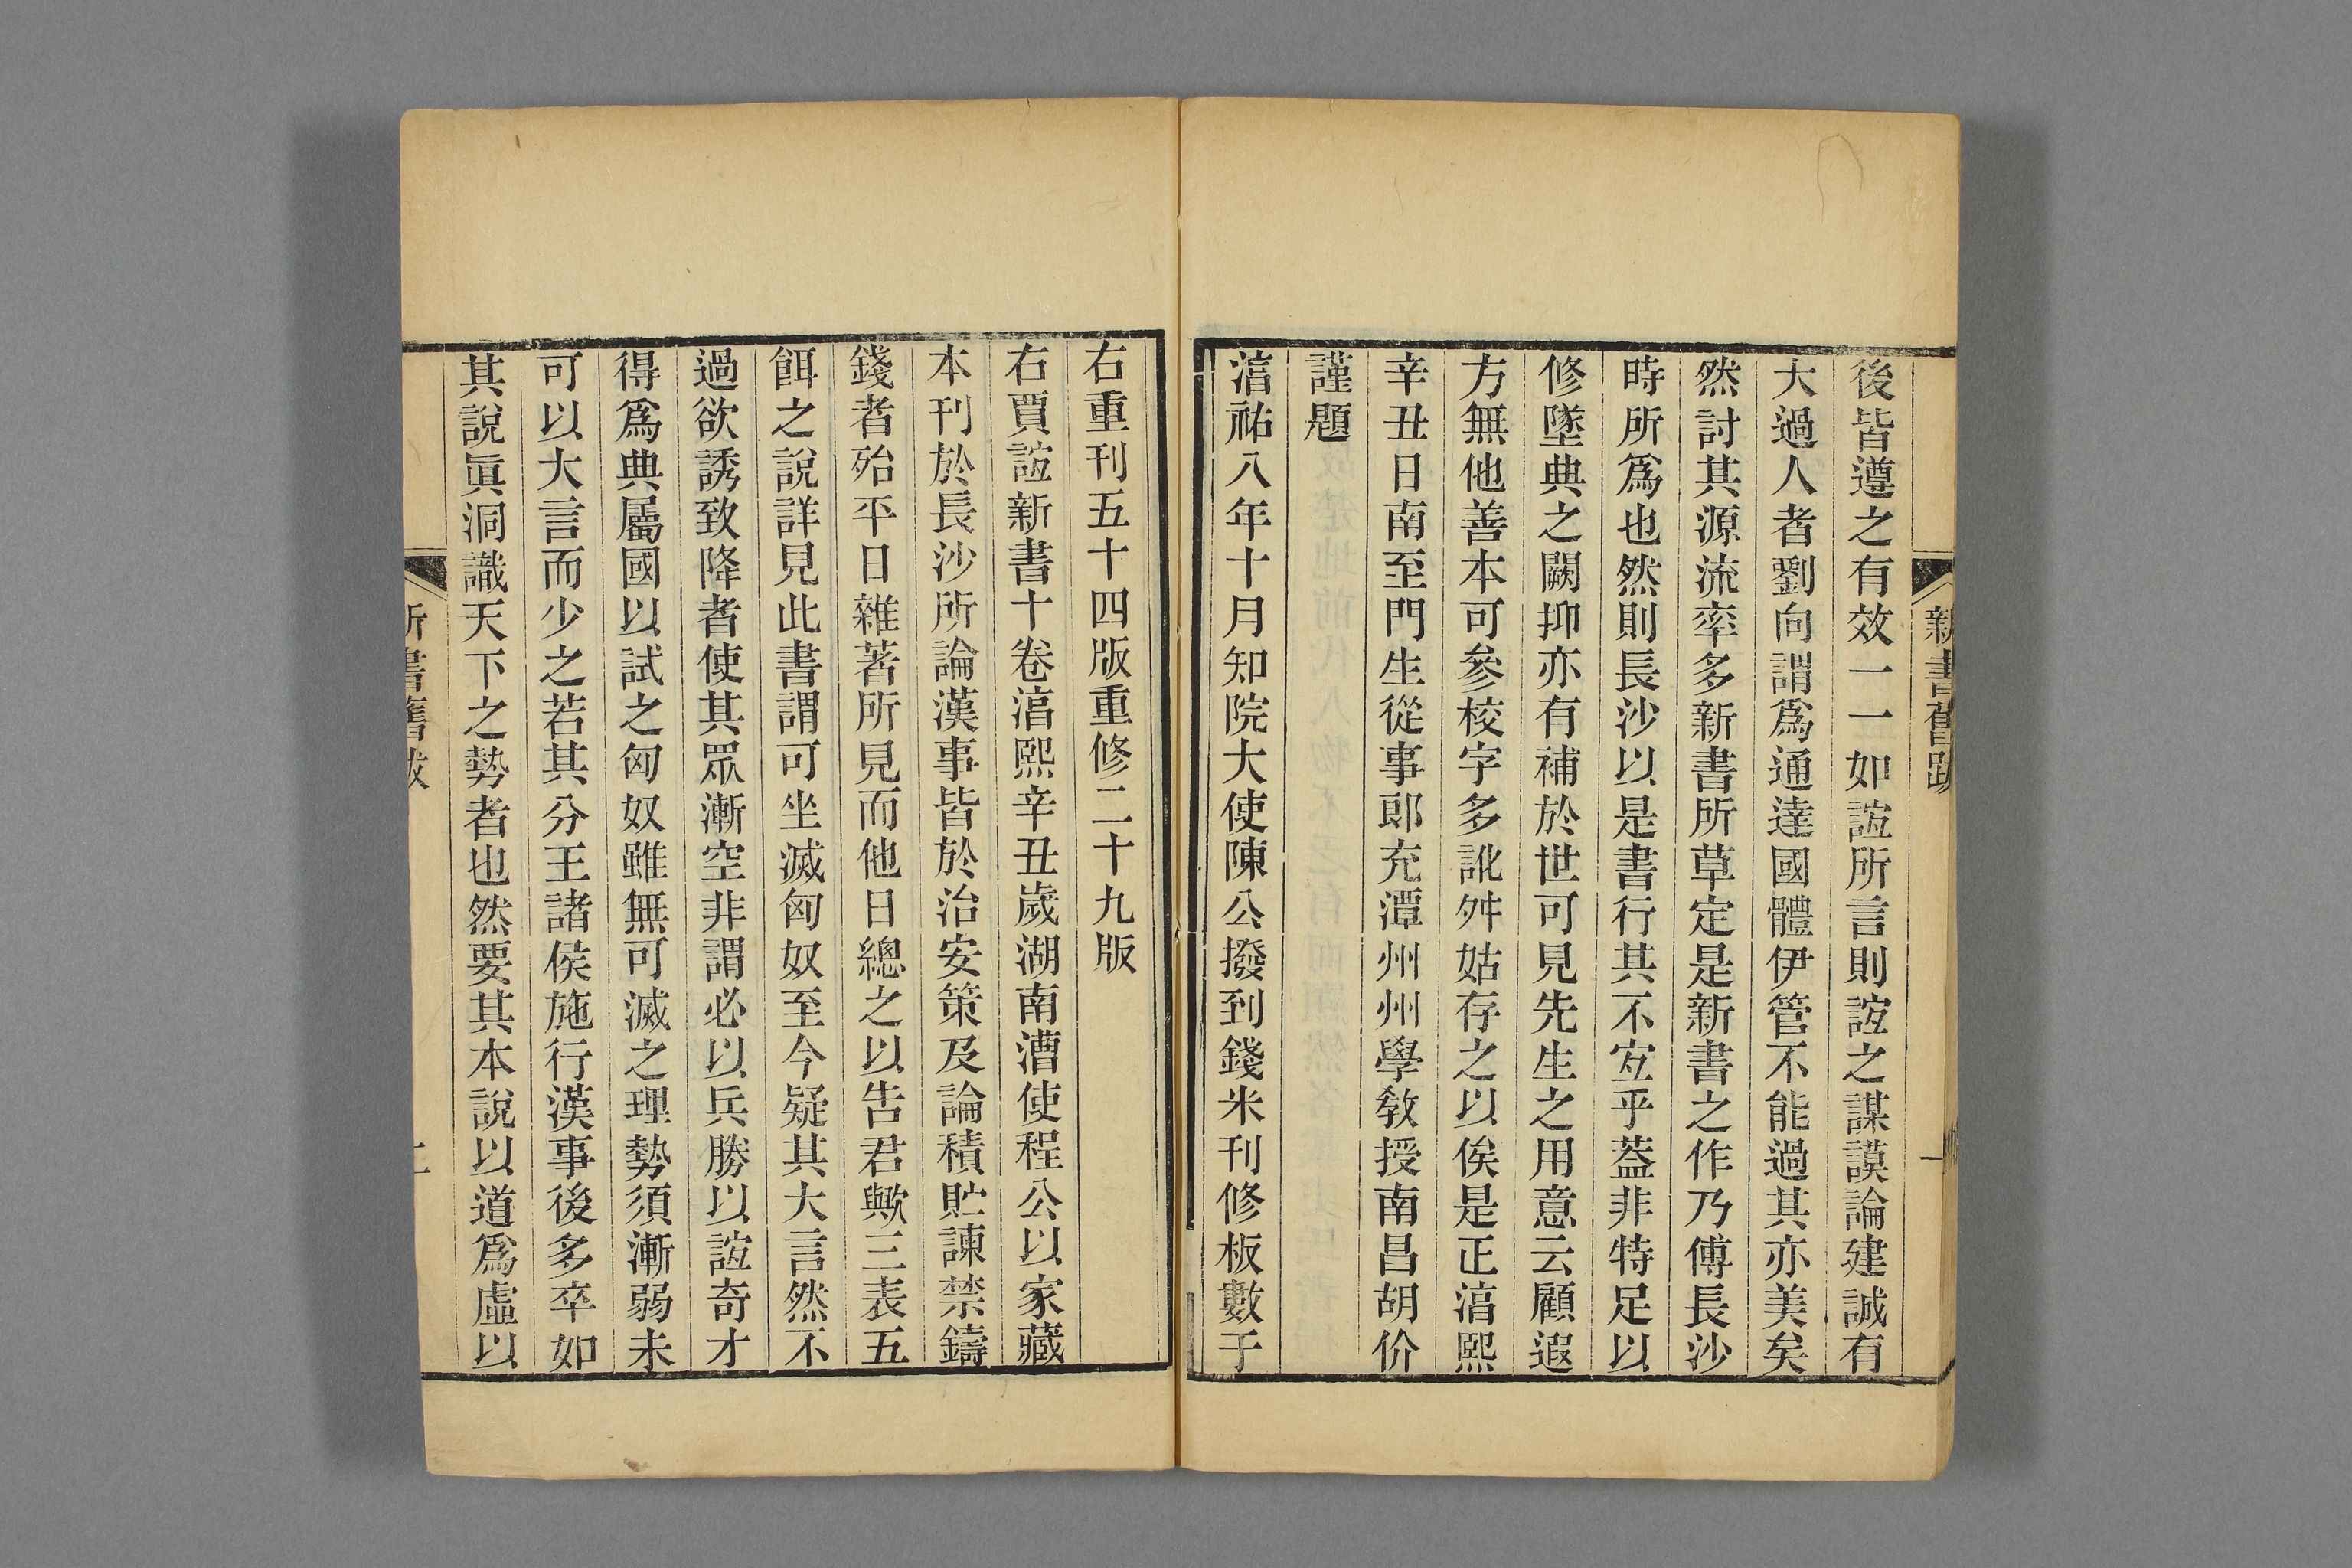 新書舊跋
一
後皆遵之有效一一如誼所言則誼之謀謨論建誠有
大過人者劉向謂爲通達國體伊管不能過其亦美矣
然討其源流率多新書所草定是新書之作乃傅長沙
時所爲也然則長沙以是書行其不宐乎葢非特足以
修墜典之闕抑亦有補於世可見先生之用意云顧遐
方無他善本可參校字多訛舛姑存之以俟是正淳熙
辛丑日南至門生從事郎充潭州州學敎授南昌胡价
謹題
淳祐八年十月知院大使陳公撥到錢米刊修板數于
右重刊五十四版重修二十九版
右賈誼新書十卷淳熙辛丑歲湖南漕使程公以家藏
本刊於長沙所論漢事皆於治安策及論積貯諫禁鑄
錢者殆平日雜著所見而他日總之以告君歟三表五
餌之說詳見此書謂可坐滅匈奴至今疑其大言然不
過欲誘致降者使其眾漸空非謂必以兵勝以誼奇才
得爲典屬國以試之匈奴雖無可滅之理勢須漸弱未
可以大言而少之若其分王諸侯施行漢事後多卒如
其說眞洞識天下之勢者也然要其本說以道爲虛以
新書舊跋
二